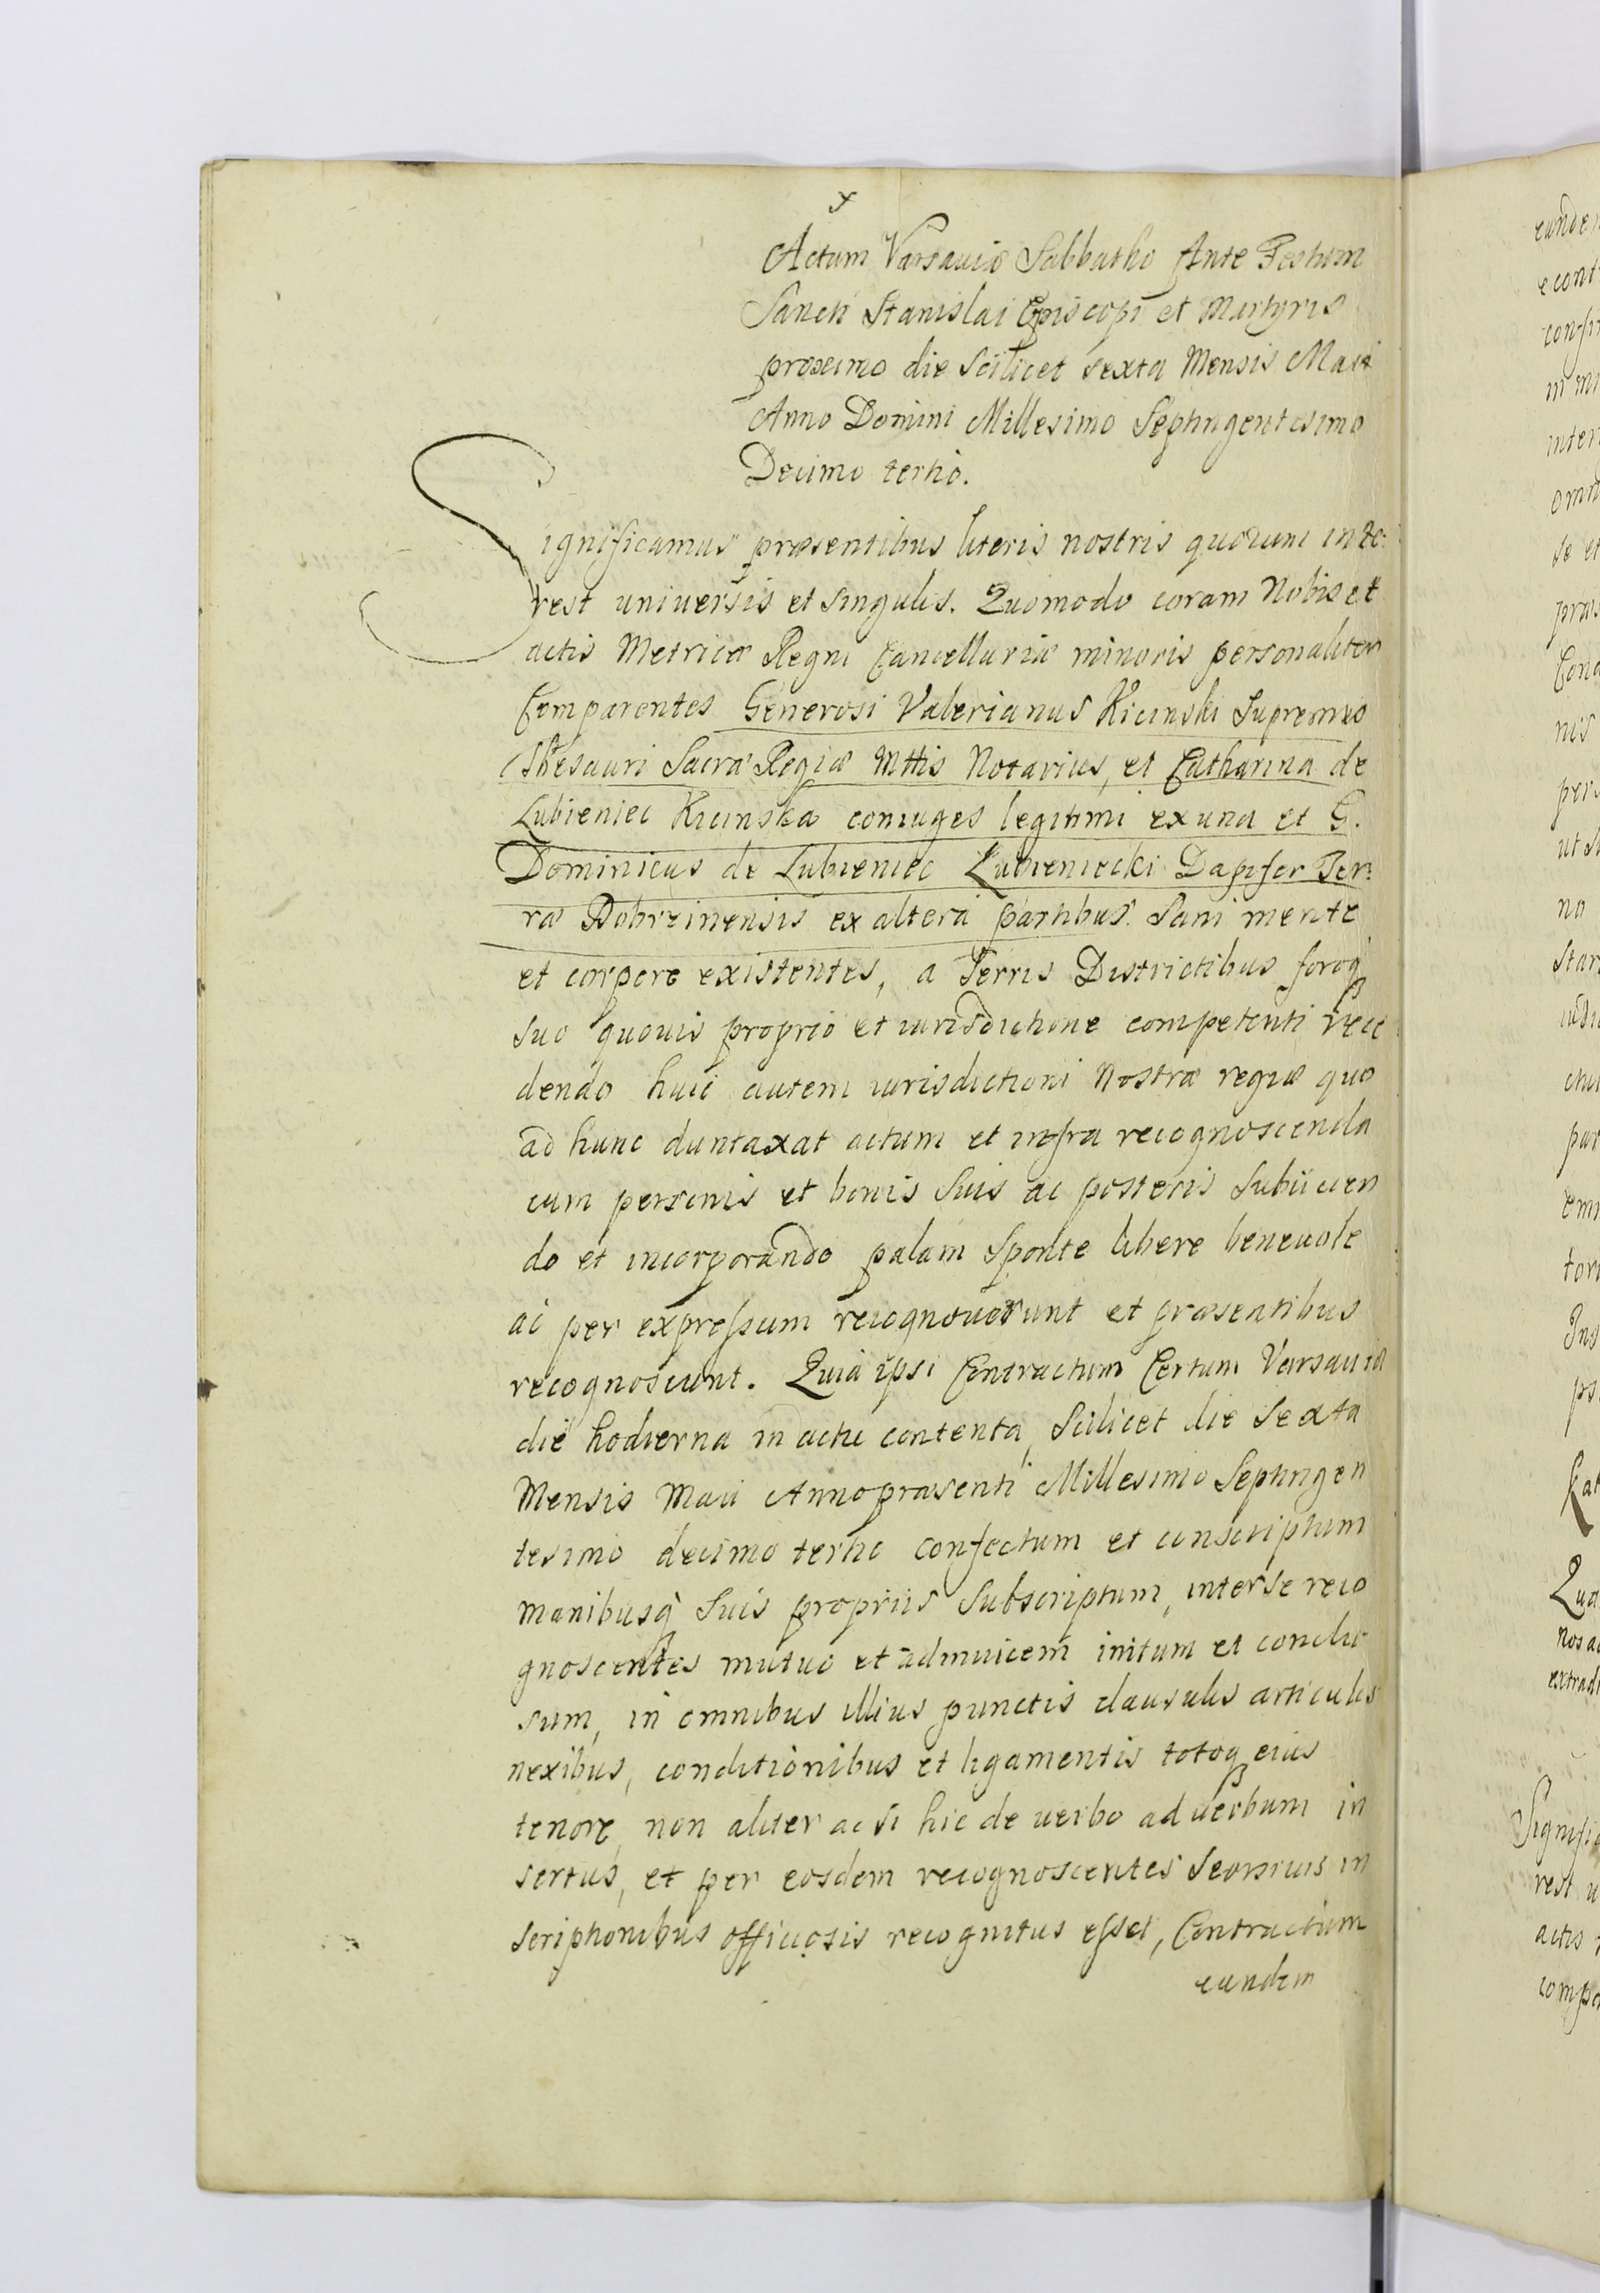 Actum Varsaviæ Sabbatho Ante Festum
Sancti Stanislai Episcopi et Martyris
proximo die Scilicet sexta Mensis Maii
Anno Domini Millesimo Septingentesimo
Decimo tertio.
Significamus præsentibus literis nostris quorum inte:
rest universis et singulis. Quomodo coram Nobis et
actis Metricæ Regni Cancellariæ minoris personaliter
Comparentes Generosi Valerianus Kicinski Supremio
Thesauri Sacræ Regiæ Mttis Notarius, et Catharina de
Lubieniec Kicinska coniuges legitimi ex una et G.
Dominicus de Lubieniec Lubieniecki Dapifer Ter:
ræ Dobrzinensis ex altera partibus. Sani mente
et corpore existentes, a Terris Districtibus foroq
suo quovis proprio et iurisdictione competenti rece
dendo huic autem iurisdictioni Nostræ regiæ quo
ad hunc duntaxat actum et infra recognoscenda
cum personis et bonis suis ac posteris subiicien
do et incorporando palam sponte libere benevole
ac per expressum recognoverunt et præsentibus
recognoscunt. Quia ipsi Contractum Certum Varsaviæ
die hodierna in actu contenta, Scilicet die Sexta
Mensis Maii Anno præsenti Millesimo Septingen
tesimo decimo tertio confectum et conscriptum
manibusq suis propriis subscriptum, inter se reco
gnoscentes mutuo et adinvicem initum et conclu
sum, in omnibus illius punctis clausulis articulis
nexibus, conditionibus et ligamentis totoq eius
tenore, non aliter ac si hic de verbo ad verbum in
sertus, et per eosdem recognoscentes seorsivis in
scriptionibus officiosis recognitus esset, Contractum
eundem